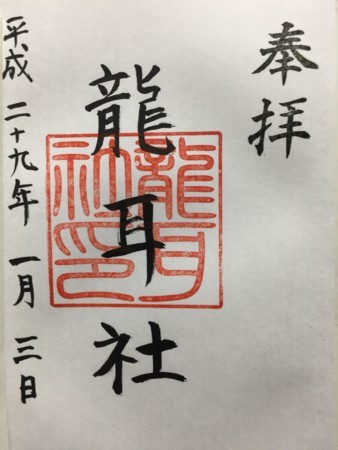 奉拝
龍耳社
龍耳
社印
平成二十九年一月三日